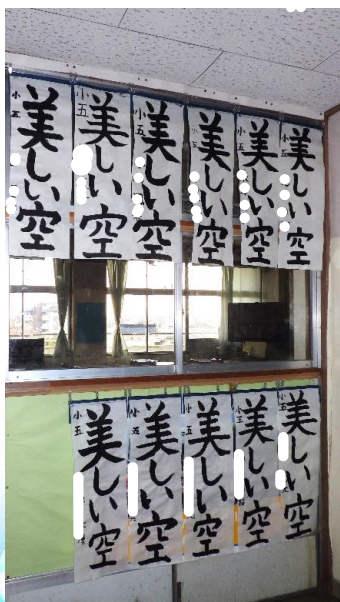 小五
美しい空
小五
美しい空
小五
美しい空
小五
美しい空
小五
美しい空
小五
美しい空
小五
美しい空
小五
美しい空
小五
美しい空
小五
美しい空
小五
美しい空